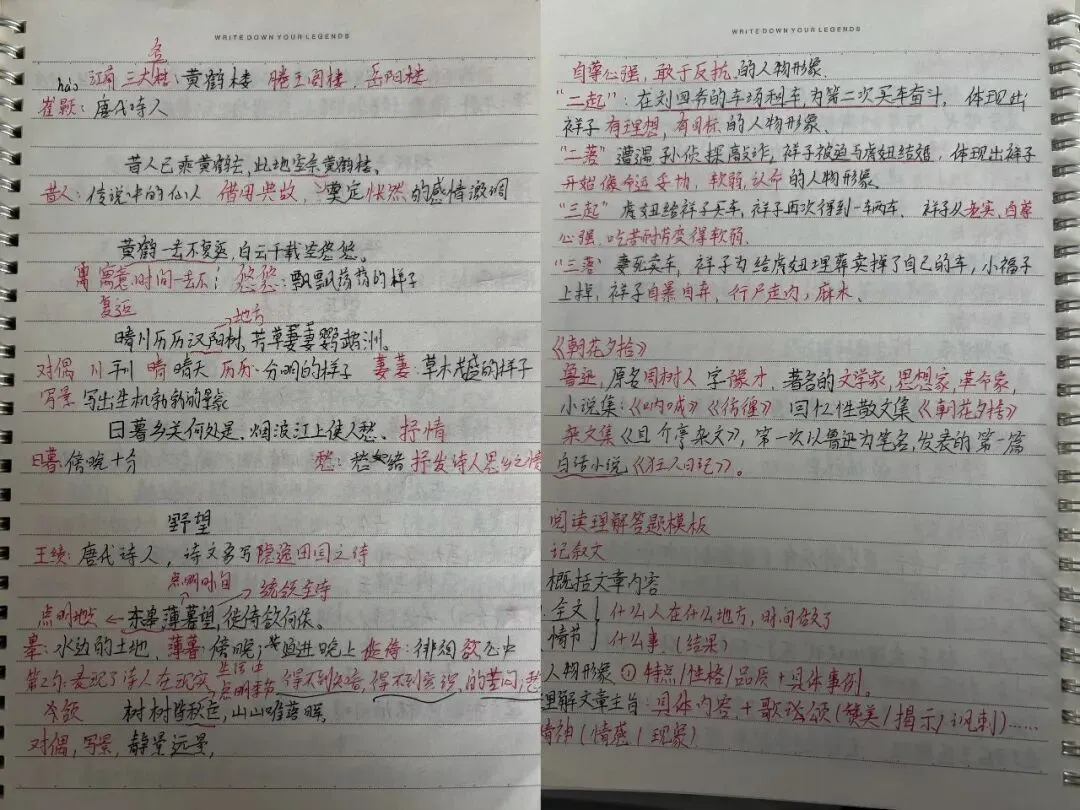 WRITE DOWN YOUR LEGENDS
名
hào 江南三大楼:黄鹤楼 滕王阁楼 岳阳楼
崔颢:唐代诗人
昔人已乘黄鹤去,此地空余黄鹤楼。
昔人:传说中的仙人 借用典故,奠定怅然的感情激调
黄鹤一去不复返,白云千载空悠悠。
寓意时间一去不 悠悠:飘飘荡荡的样子
复返 →地方
晴川历历汉阳树,芳草萋萋鹦鹉洲。
对偶 川平川 晴晴天 历历:分明的样子 萋萋:草木茂盛的样子
写景 写出生机勃勃的景象
日暮乡关何处是,烟波江上使人愁。抒情
日暮:傍晚十分 愁:愁绪 抒发诗人思乡之情
野望
王绩:唐代诗人,诗文多写隐逸田园之诗
点明时间 →统领全诗
点明地点←东皋薄暮望,徙倚欲何依。
皋:水边的土地 薄暮:傍晚; 进晚上 徙倚:徘徊
第2句:表现了诗人在现实生活中得不到知音,得不到赏识,的苦闷,愁
点明季节
树树皆秋色,山山唯落晖。
对偶,写景,静景远景,
WRITE DOWN YOUR LEGENDS
自尊心强,敢于反抗的人物形象.
“二起”:在刘四爷的车场租车,为第二次买车奋斗, 体现出
祥子有理想,有目标的人物形象、
“二落”遭遇孙侦探敲诈,祥子被迫与虎妞结婚, 体现出祥子
开始像命运妥协,软弱,认命的人物形象、
“三起”虎妞给祥子买车,祥子再次得到一车两车、 祥子从老实,自尊
心强,吃苦耐劳变得软弱.
“三落”妻死卖车,祥子为给虎妞埋葬卖掉了自己的车,小福子
上掉,祥子自暴自弃,行尸走肉,麻木、
《朝花夕拾》
鲁迅,原名周树人 字豫才,著名的文学家,思想家,革命家,
小说集:《呐喊》《彷徨》 回忆性散文集《朝花夕拾》
杂文集《且介亭杂文》,第一次以鲁迅为笔名,发表的第一篇
白话小说《狂人日记》。
阅读理解答题模板
记叙文
概括文章内容
全文 什么人在什么地方,时间做了
情节 什么事.(结果)
人物形象①特点/性格/品质+具体事例。
理解文章主旨:具体内容+歌颂(赞美/揭示/讽刺)……
精神(情感/现象)